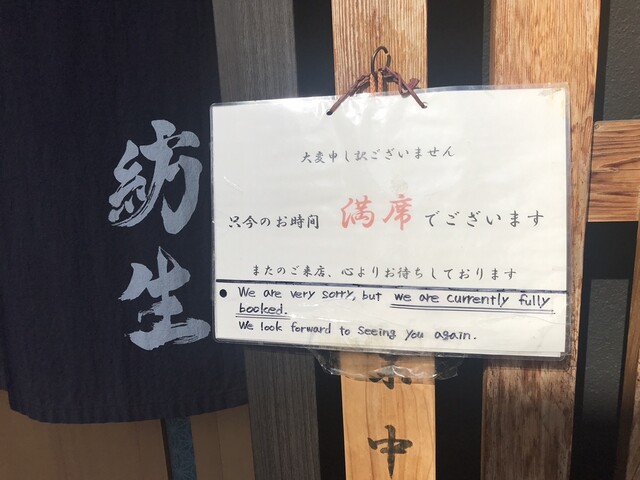 紡生
大変申し訳ございません
只今のお時間 満席 でございます
またのご来店、心よりお待ちしております
● We are very sorry, but we are currently fully
booked.
We look forward to seeing you again.
中